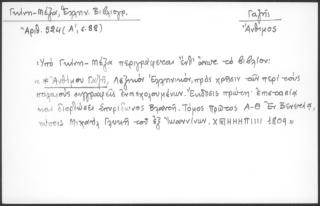 Γκίνη-Μέξα, Ἑλλην. Βιβλιογρ.
Γαζῆς
Ἀριθ. 524 (Α', σ. 88)
Ἄνθιμος
Ὑπὸ Γκίνη-Μέξα περιγράφεται ἔνθ' ἄνωτ. τὸ βιβλίον:
« * Ἀνθίμου Γαζῆ, Λεξικὸν Ἑλληνικόν, πρὸς χρῆσιν τῶν περὶ τοὺς
παλαιοὺς συγγραφεῖς ἐνασχολουμένων. Ἔκδοσις πρώτη ἐπιστασίᾳ
καὶ διορθώσει Σπυρίδωνος Βλαντῆ. Τόμος πρῶτος Α-Θ Ἐν Βενετίᾳ,
Μιχαὴλ Γλυκῆ τοῦ ἐξ Ἰωαννίνων. ΧΗΗΗΠΙΙΙΙ 1809.»